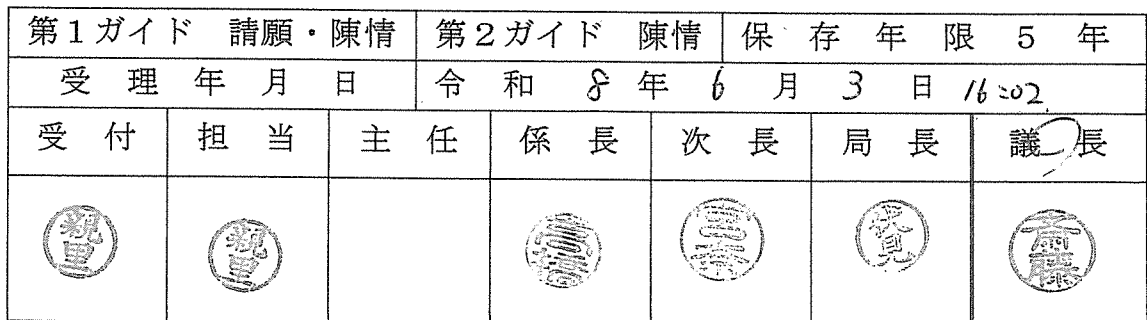 第1ガイド 請願・陳情 第2ガイド 陳情 保存年限5年
受理年月日 令和8年6月3日 16:02
受付 担当 主任 係長 次長 局長 議長
親里 親里 伏見 斎藤